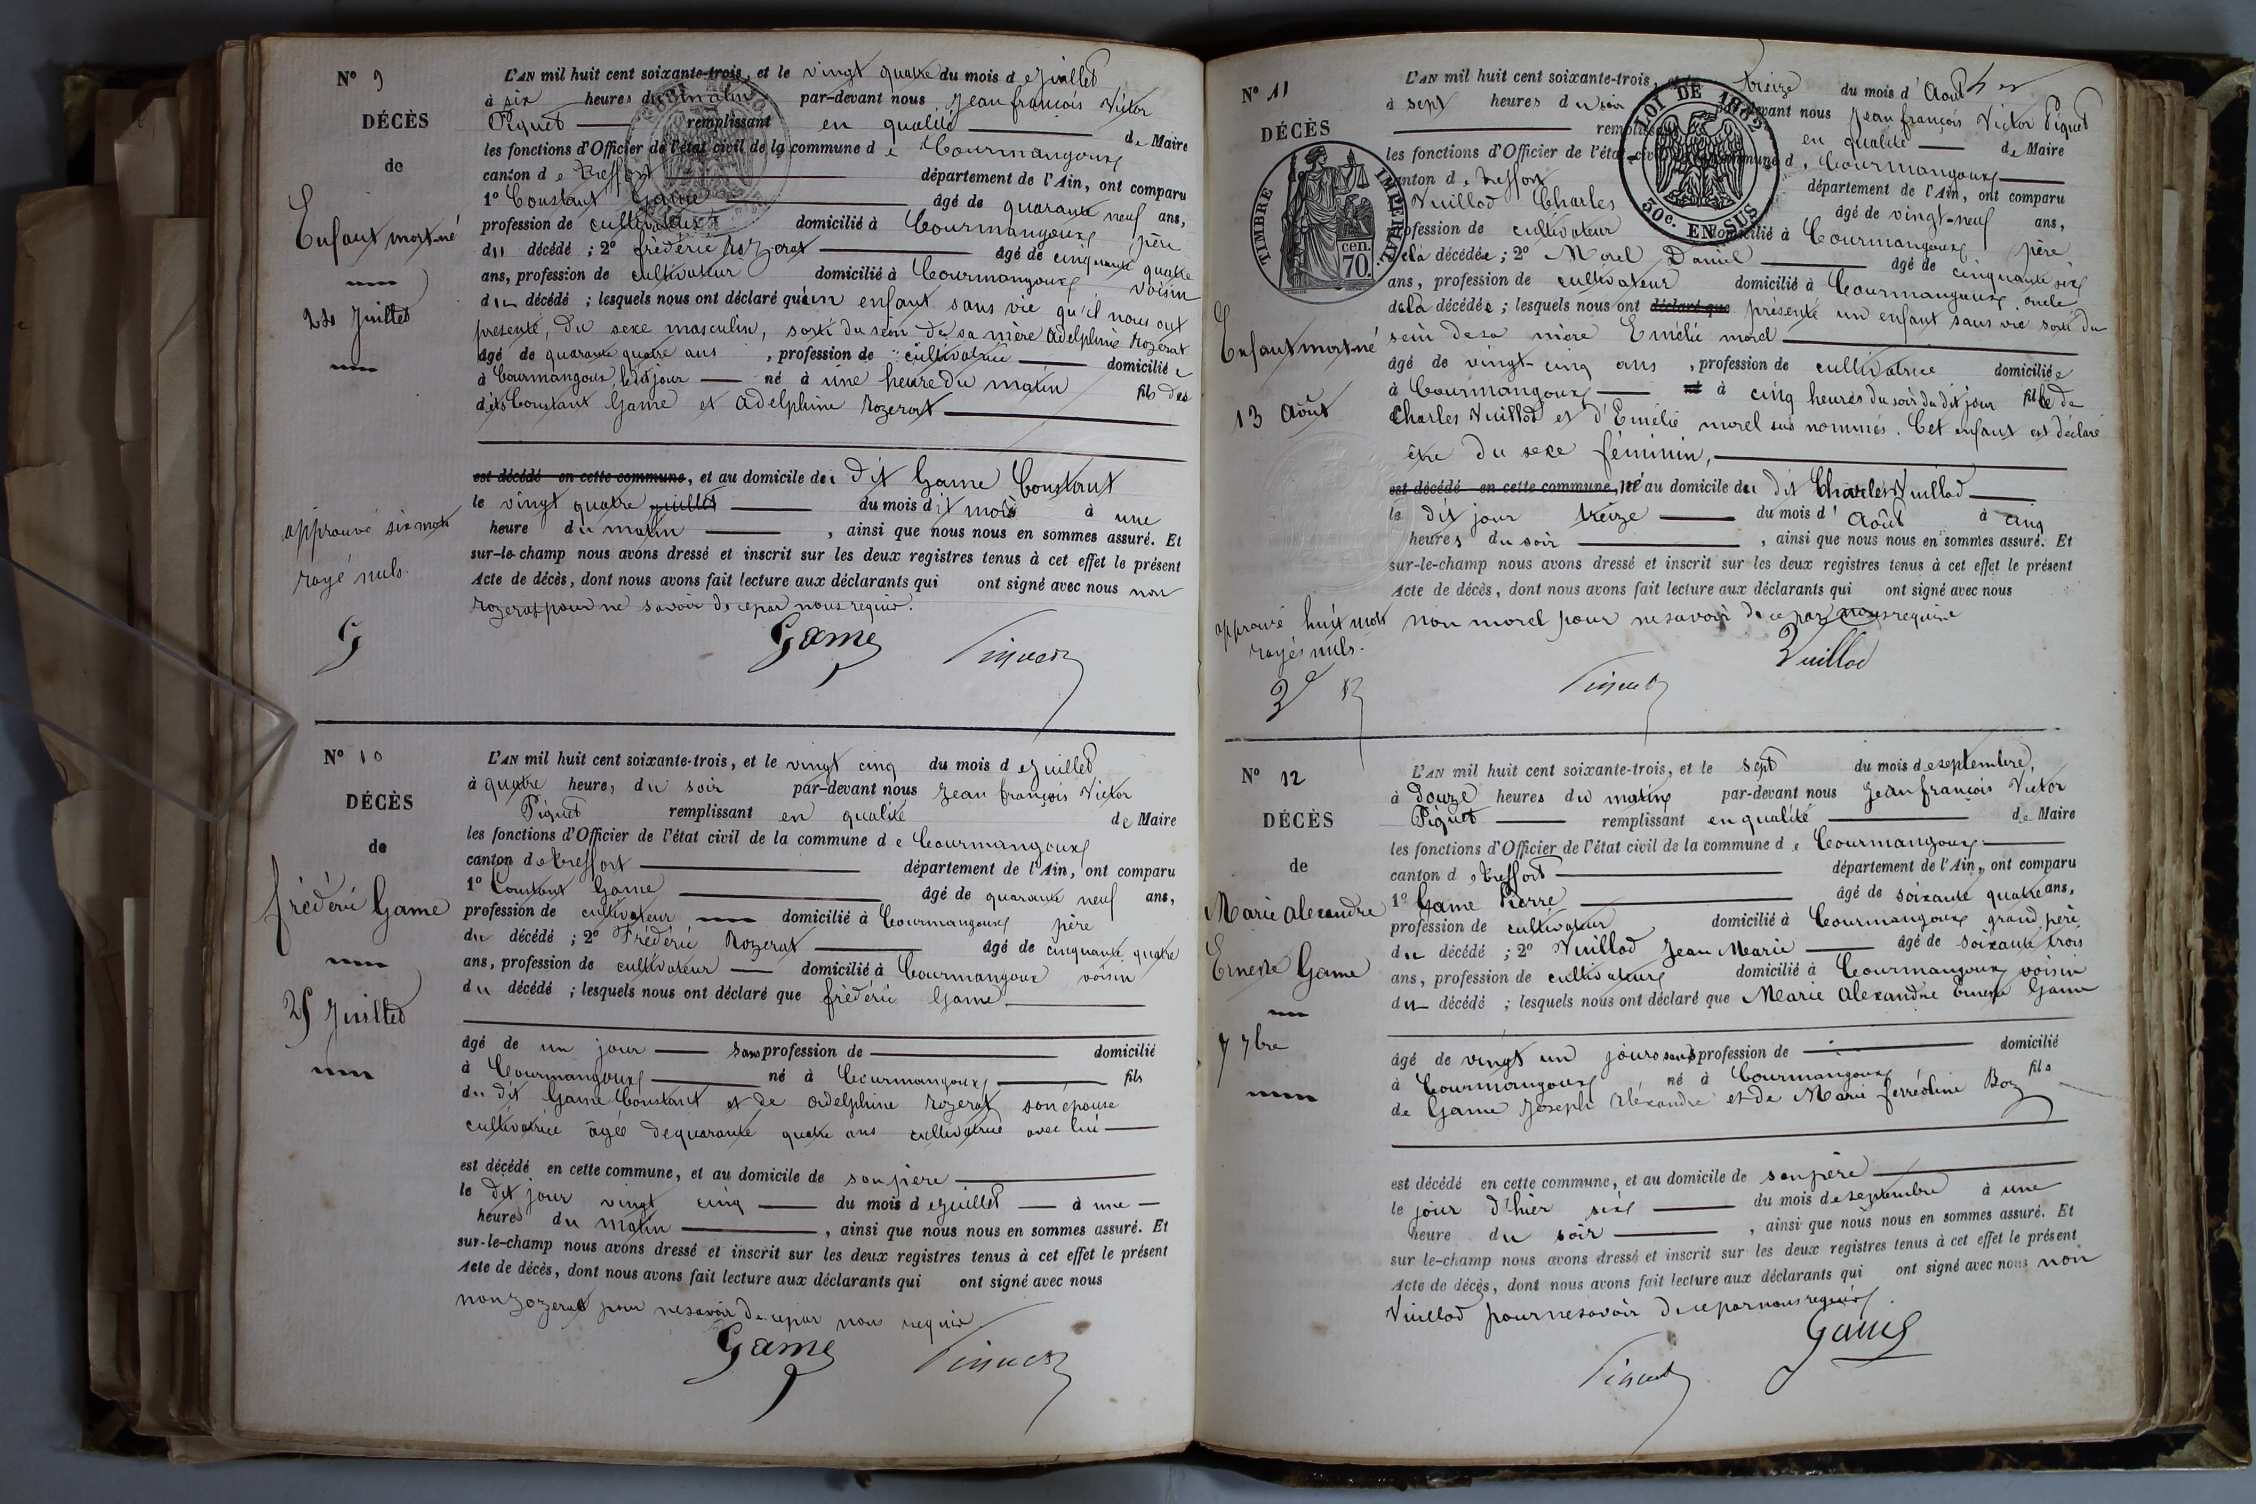 N° 9
DÉCÈS
de
Enfant mort-né
24 Juillet
approuvé six mots
rayé nuls.
G
L'AN mil huit cent soixante-trois, et le vingt quatre du mois de Juillet
à six heures du matin par-devant nous Jean françois Victor
Piquet remplissant en qualité de Maire
les fonctions d'Officier de l'état civil de la commune de Courmangoux
canton de treffort département de l'Ain, ont comparu
1° Constant Game âgé de quarante neuf ans,
profession de cultivateur domicilié à Courmangoux père
du décédé ; 2° frédéric Rozerat âgé de cinquante quatre
ans, profession de cultivateur domicilié à Courmangoux voisin
du décédé ; lesquels nous ont déclaré qu'un enfant sans vie qu'il nous ont
présenté, du sexe masculin, sorti du sein de sa mère adelphine Rozerat
âgé de quarante quatre ans, profession de cultivatrice domicilié e
à Courmangoux, ledit jour né à une heure du matin fils des
dits Constant Game et adelphine Rozerat
est décédé en cette commune, et au domicile de dit Game Constant
le vingt quatre juillet du mois dit mois à une
heure du matin, ainsi que nous nous en sommes assuré. Et
sur-le-champ nous avons dressé et inscrit sur les deux registres tenus à cet effet le présent
Acte de décès, dont nous avons fait lecture aux déclarants qui ont signé avec nous non
Rozerat pour ne savoir de ce par nous requis.
Game Piquet
N° 10
DÉCÈS
de
frédéric Game
25 Juillet
L'AN mil huit cent soixante-trois, et le vingt cinq du mois de Juillet
à quatre heures du soir par-devant nous Jean françois Victor
Piquet remplissant en qualité de Maire
les fonctions d'Officier de l'état civil de la commune de Courmangoux
canton de treffort département de l'Ain, ont comparu
1° Constant Game âgé de quarante neuf ans,
profession de cultivateur domicilié à Courmangoux père
du décédé ; 2° Frédéric Rozerat âgé de cinquante quatre
ans, profession de cultivateur domicilié à Courmangoux voisin
du décédé ; lesquels nous ont déclaré que frédéric Game
âgé de un jour sans profession de domicilié
à Courmangoux né à Courmangoux fils
du dit Game Constant et de adelphine rozerat son épouse
cultivatrice âgée de quarante quatre ans cultivatrice avec lui
est décédé en cette commune, et au domicile de son père
le dit jour vingt cinq du mois de Juillet à une
heures du matin, ainsi que nous nous en sommes assuré. Et
sur-le-champ nous avons dressé et inscrit sur les deux registres tenus à cet effet le présent
Acte de décès, dont nous avons fait lecture aux déclarants qui ont signé avec nous
non rozerat pour ne savoir de ce par nous requis
Game Piquet
N° 11
DÉCÈS
TIMBRE IMPÉRIAL
70 cen.
Enfant mort-né
13 Août
approuvé huit mots
rayés nuls.
LOI DE 1862
30c. EN SUS
L'AN mil huit cent soixante-trois, treize du mois d'Août
à sept heures du soir devant nous Jean françois Victor Piquet
remplissant en qualité de Maire
les fonctions d'Officier de l'état civil de la commune de Courmangoux
canton de treffort département de l'Ain, ont comparu
Vuillod Charles âgé de vingt-neuf ans,
profession de cultivateur domicilié à Courmangoux père
de la décédée ; 2° Morel Daniel âgé de cinquante six
ans, profession de cultivateur domicilié à Courmangoux oncle
de la décédée ; lesquels nous ont déclaré que présenté un enfant sans vie sorti du
sein de sa mère Emélie morel
âgé de vingt-cinq ans, profession de cultivatrice domicilié e
à Courmangoux né à cinq heures du soir du dit jour fille de
Charles Vuillod et d'Emélie morel sus nommés. Cet enfant est déclaré
être du sexe féminin,
est décédé en cette commune, né au domicile du dit Charles Vuillod
le dit jour treize du mois d'Août à cinq
heures du soir, ainsi que nous nous en sommes assuré. Et
sur-le-champ nous avons dressé et inscrit sur les deux registres tenus à cet effet le présent
Acte de décès, dont nous avons fait lecture aux déclarants qui ont signé avec nous
non morel pour ne savoir de ce par nous requis
Vuillod
Piquet
N° 12
DÉCÈS
de
Marie Alexandre
Ernest Game
7 7bre
L'AN mil huit cent soixante-trois, et le sept du mois de septembre,
à douze heures du matin par-devant nous Jean françois Victor
Piquet remplissant en qualité de Maire
les fonctions d'Officier de l'état civil de la commune de Courmangoux
canton de treffort département de l'Ain, ont comparu
1° Game Pierre âgé de soixante quatre ans,
profession de cultivateur domicilié à Courmangoux grand père
du décédé ; 2° Vuillod Jean Marie âgé de soixante trois
ans, profession de cultivateur domicilié à Courmangoux voisin
du décédé ; lesquels nous ont déclaré que Marie Alexandre Ernest Game
âgé de vingt un jours sans profession de domicilié
à Courmangoux né à Courmangoux fils
de Game Joseph Alexandre et de Marie ferréoline Boz
est décédé en cette commune, et au domicile de son père
le jour d'hier six du mois de septembre à une
heure du soir, ainsi que nous nous en sommes assuré. Et
sur le-champ nous avons dressé et inscrit sur les deux registres tenus à cet effet le présent
Acte de décès, dont nous avons fait lecture aux déclarants qui ont signé avec nous non
Vuillod pour ne savoir de ce par nous requis.
Game
Piquet